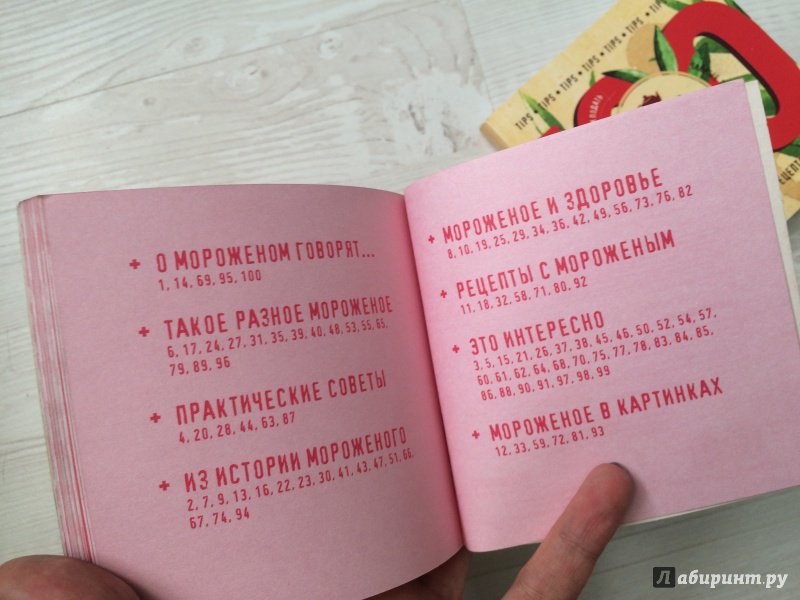 + О МОРОЖЕНОМ ГОВОРЯТ...
1, 14, 69, 95, 100
+ ТАКОЕ РАЗНОЕ МОРОЖЕНОЕ
6, 17, 24, 27, 31, 35, 39, 40, 48, 53, 55, 65,
79, 89, 96
+ ПРАКТИЧЕСКИЕ СОВЕТЫ
4, 20, 28, 44, 63, 87
+ ИЗ ИСТОРИИ МОРОЖЕНОГО
2, 7, 9, 13, 16, 22, 23, 30, 41, 43, 47, 51, 66,
67, 74, 94
+ МОРОЖЕНОЕ И ЗДОРОВЬЕ
8, 10, 19, 25, 29, 34, 36, 42, 49, 56, 73, 76, 82
+ РЕЦЕПТЫ С МОРОЖЕНЫМ
11, 18, 32, 58, 71, 80, 92
+ ЭТО ИНТЕРЕСНО
3, 5, 15, 21, 26, 37, 38, 45, 46, 50, 52, 54, 57,
60, 61, 62, 64, 68, 70, 75, 77, 78, 83, 84, 85,
86, 88, 90, 91, 97, 98, 99
+ МОРОЖЕНОЕ В КАРТИНКАХ
12, 33, 59, 72, 81, 93
TIPS • TIPS • TIPS • TIPS • TIPS • TIPS
Лабиринт.ру